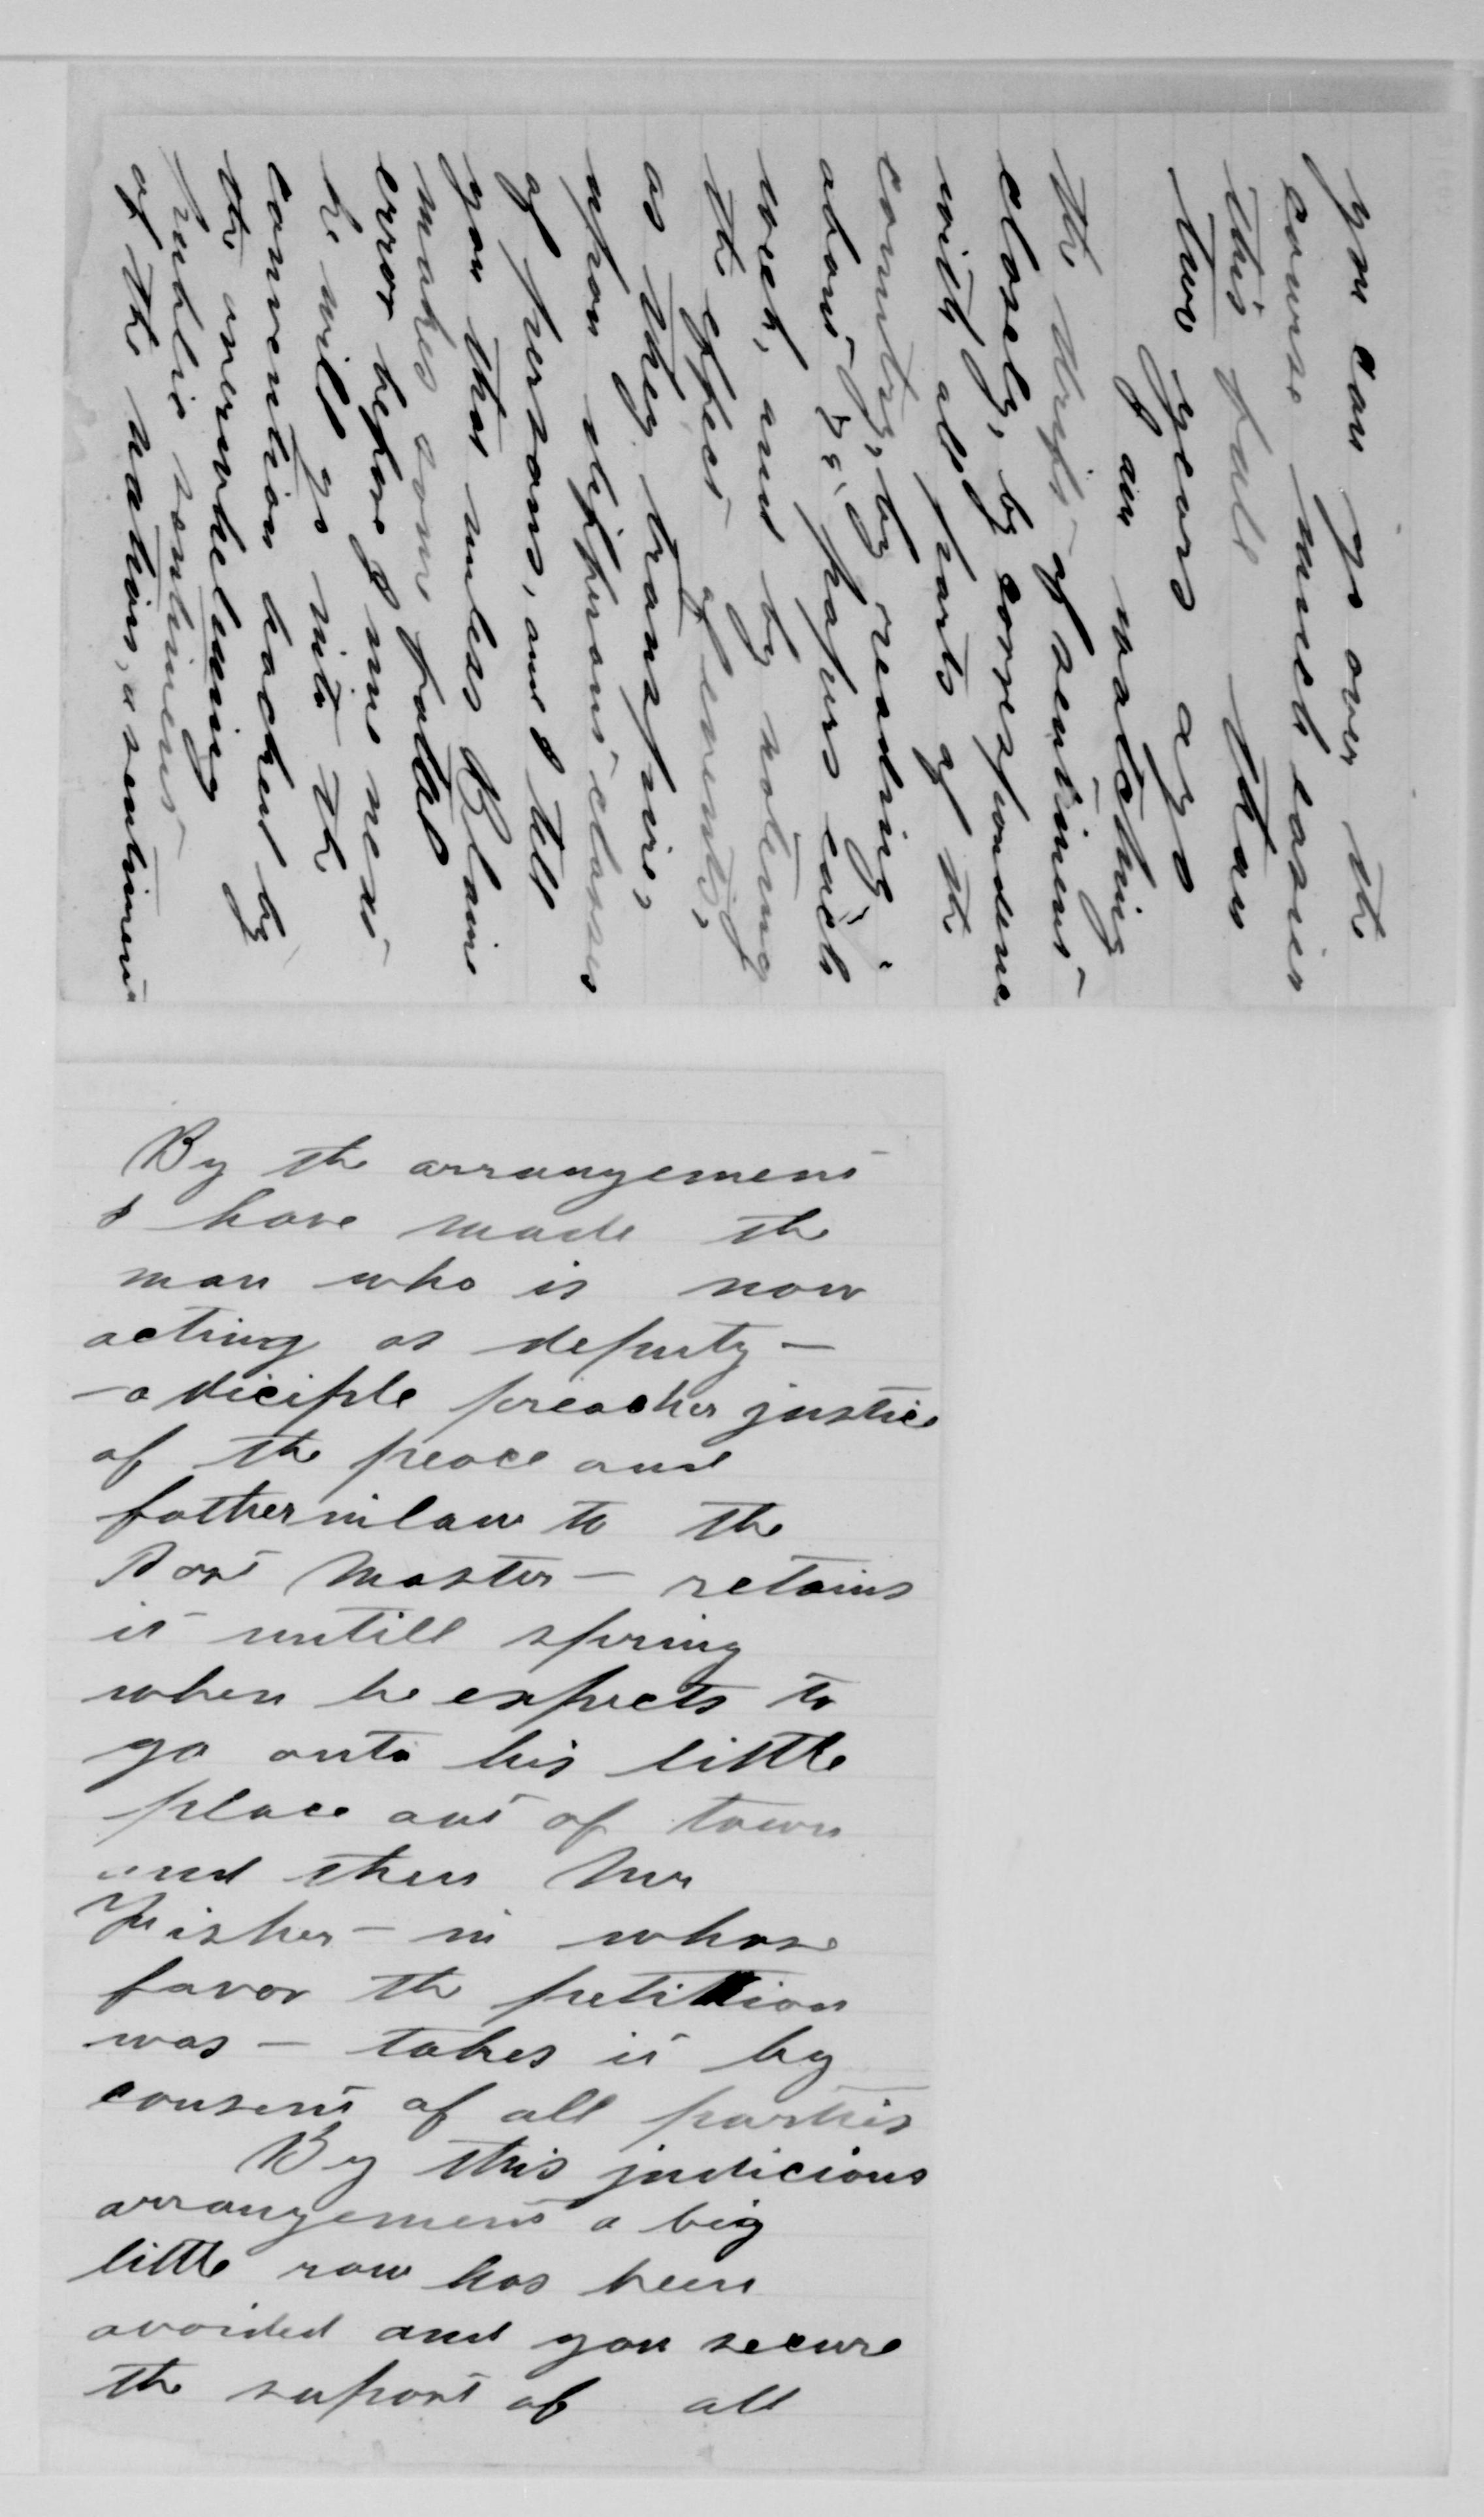 you can go over the
course much easier
this fall than
two years ago
I am watching
the drift of sentiment
closely, by correspondence
with all parts of the
country, by reading
about papers each
week, and by noting
the effect of events,
as they transpire,
upon different classes
of persons, and I tell
you that unless Blaine
makes some fatal
error before June next
he will go into the
convention backed by
the overwhelming
public sentiment
of the nation, a sentiment
By the arrangement
I have made the
man who is now
acting as deputy —
— a diciple preacher justice
of the peace and
father in law to the
Post Master — retains
it untill spring
when he expects to
go onto his little
place out of town
and then Mr
Fisher — in whose
favor the petition
was — takes it by
consent of all parties
By this judicious
arrangement a big
little row has been
avoided and you secure
the suport of all